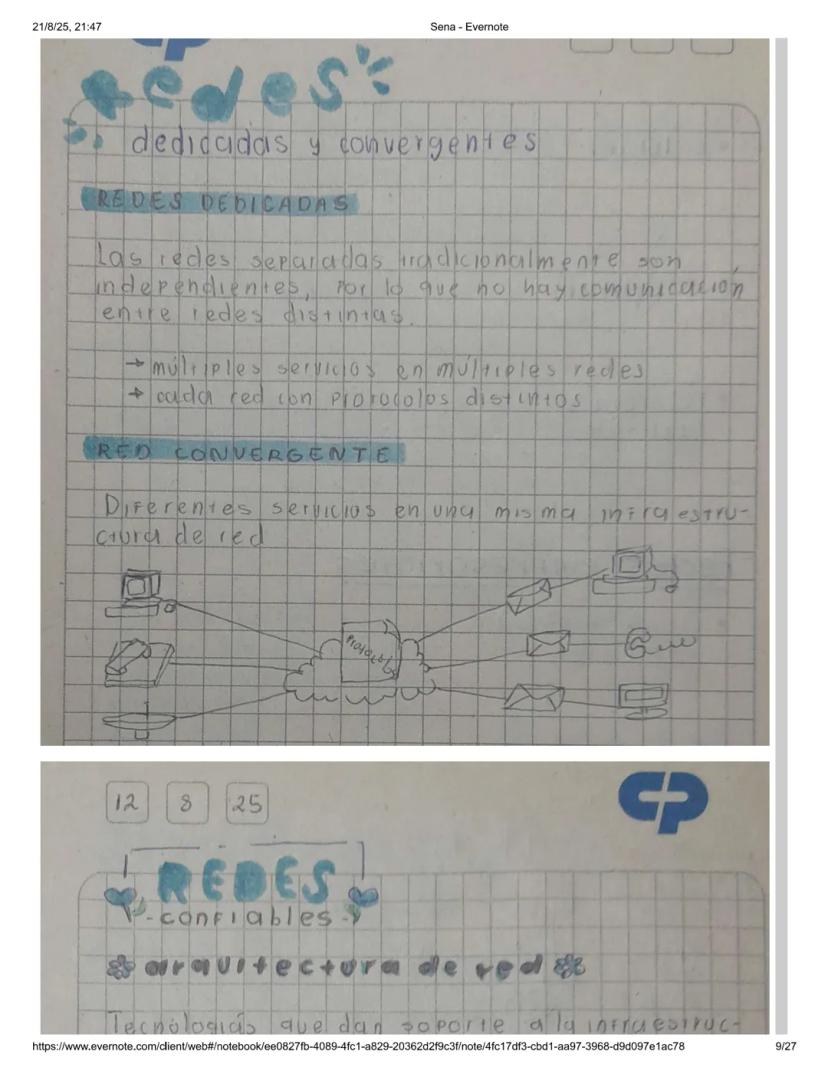 21/8/25, 21:47
Sena - Evernote
Redes
dedicadas y convergentes
REDES DEDICADAS
Las redes separadas tradicionalmente son
independientes, Por lo que no hay comunicación
entre redes distintas.
→ múltiples servicios en múltiples redes
→ cada red con Protocolos distintos
RED CONVERGENTE
Diferentes servicios en una misma infraestru-
ctura de red
Protocolo
12 8 25
CP
REDES
- confiables -
arquitectura de red
Tecnologías que dan soporte a la infraestruc-
https://www.evernote.com/client/web#/notebook/ee0827fb-4089-4fc1-a829-20362d2f9c3f/note/4fc17df3-cbd1-aa97-3968-d9d097e1ac78
9/27